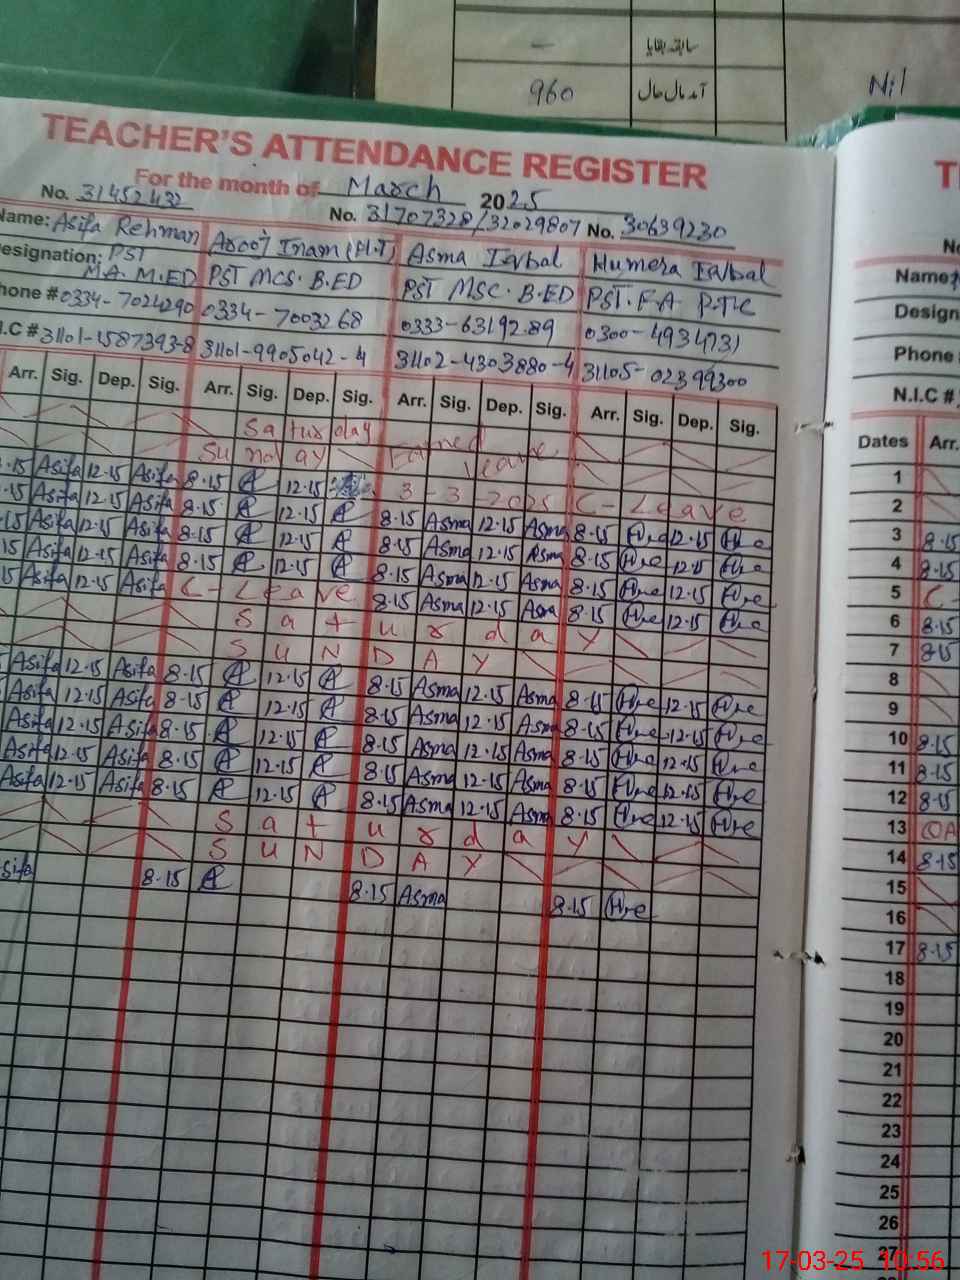 سابقہ بقایا
960 آمد مال حال Nil
TEACHER'S ATTENDANCE REGISTER
For the month of March 2025
No. 31452432 No. 31707328/32029807 No. 30639230
Name: Asifa Rehman Arooj Inam (H.T) Asma Iqbal Humera Iqbal
Designation: PST PST MCS. B.ED PST MSC. B.ED PST. F.A P.T.C
M.A. M.ED
Phone # 0334-7024290 0334-7003268 0333-6319289 0300-4934731
N.I.C # 31101-1587393-8 31101-9905042-4 31102-4303880-4 31105-02399300
Arr. Sig. Dep. Sig. Arr. Sig. Dep. Sig. Arr. Sig. Dep. Sig. Arr. Sig. Dep. Sig.
Saturday
Sunday Earned Leave
8.15 Asifa 12.15 Asifa 8.15 12.15 3-3-2025 C-Leave
8.15 Asifa 12.15 Asifa 8.15 12.15 8.15 Asma 12.15 Asma 8.15 12.15
8.15 Asifa 12.15 Asifa 8.15 12.15 8.15 Asma 12.15 Asma 8.15 12.15
15 Asifa 12.15 Asifa 8.15 12.15 8.15 Asma 12.15 Asma 8.15 12.15
15 Asifa 12.15 Asifa C-Leave 8.15 Asma 12.15 Asma 8.15 12.15
Saturday
SUNDAY
Asifa 12.15 Asifa 8.15 12.15 8.15 Asma 12.15 Asma 8.15 12.15
Asifa 12.15 Asifa 8.15 12.15 8.15 Asma 12.15 Asma 8.15 12.15
Asifa 12.15 Asifa 8.15 12.15 8.15 Asma 12.15 Asma 8.15 12.15
Asifa 12.15 Asifa 8.15 12.15 8.15 Asma 12.15 Asma 8.15 12.15
Asifa 12.15 Asifa 8.15 12.15 8.15 Asma 12.15 Asma 8.15 12.15
Saturday
SUNDAY
sifa 8.15 8.15 Asma 8.15
T
No
Name:
Design
Phone
N.I.C #
Dates Arr.
1
2
3 8.15
4 8.15
5 C-
6 8.15
7 8.15
8
9
10 8.15
11 8.15
12 8.15
13
14 8.15
15
16
17 8.15
18
19
20
21
22
23
24
25
26
27
17-03-25 10:56